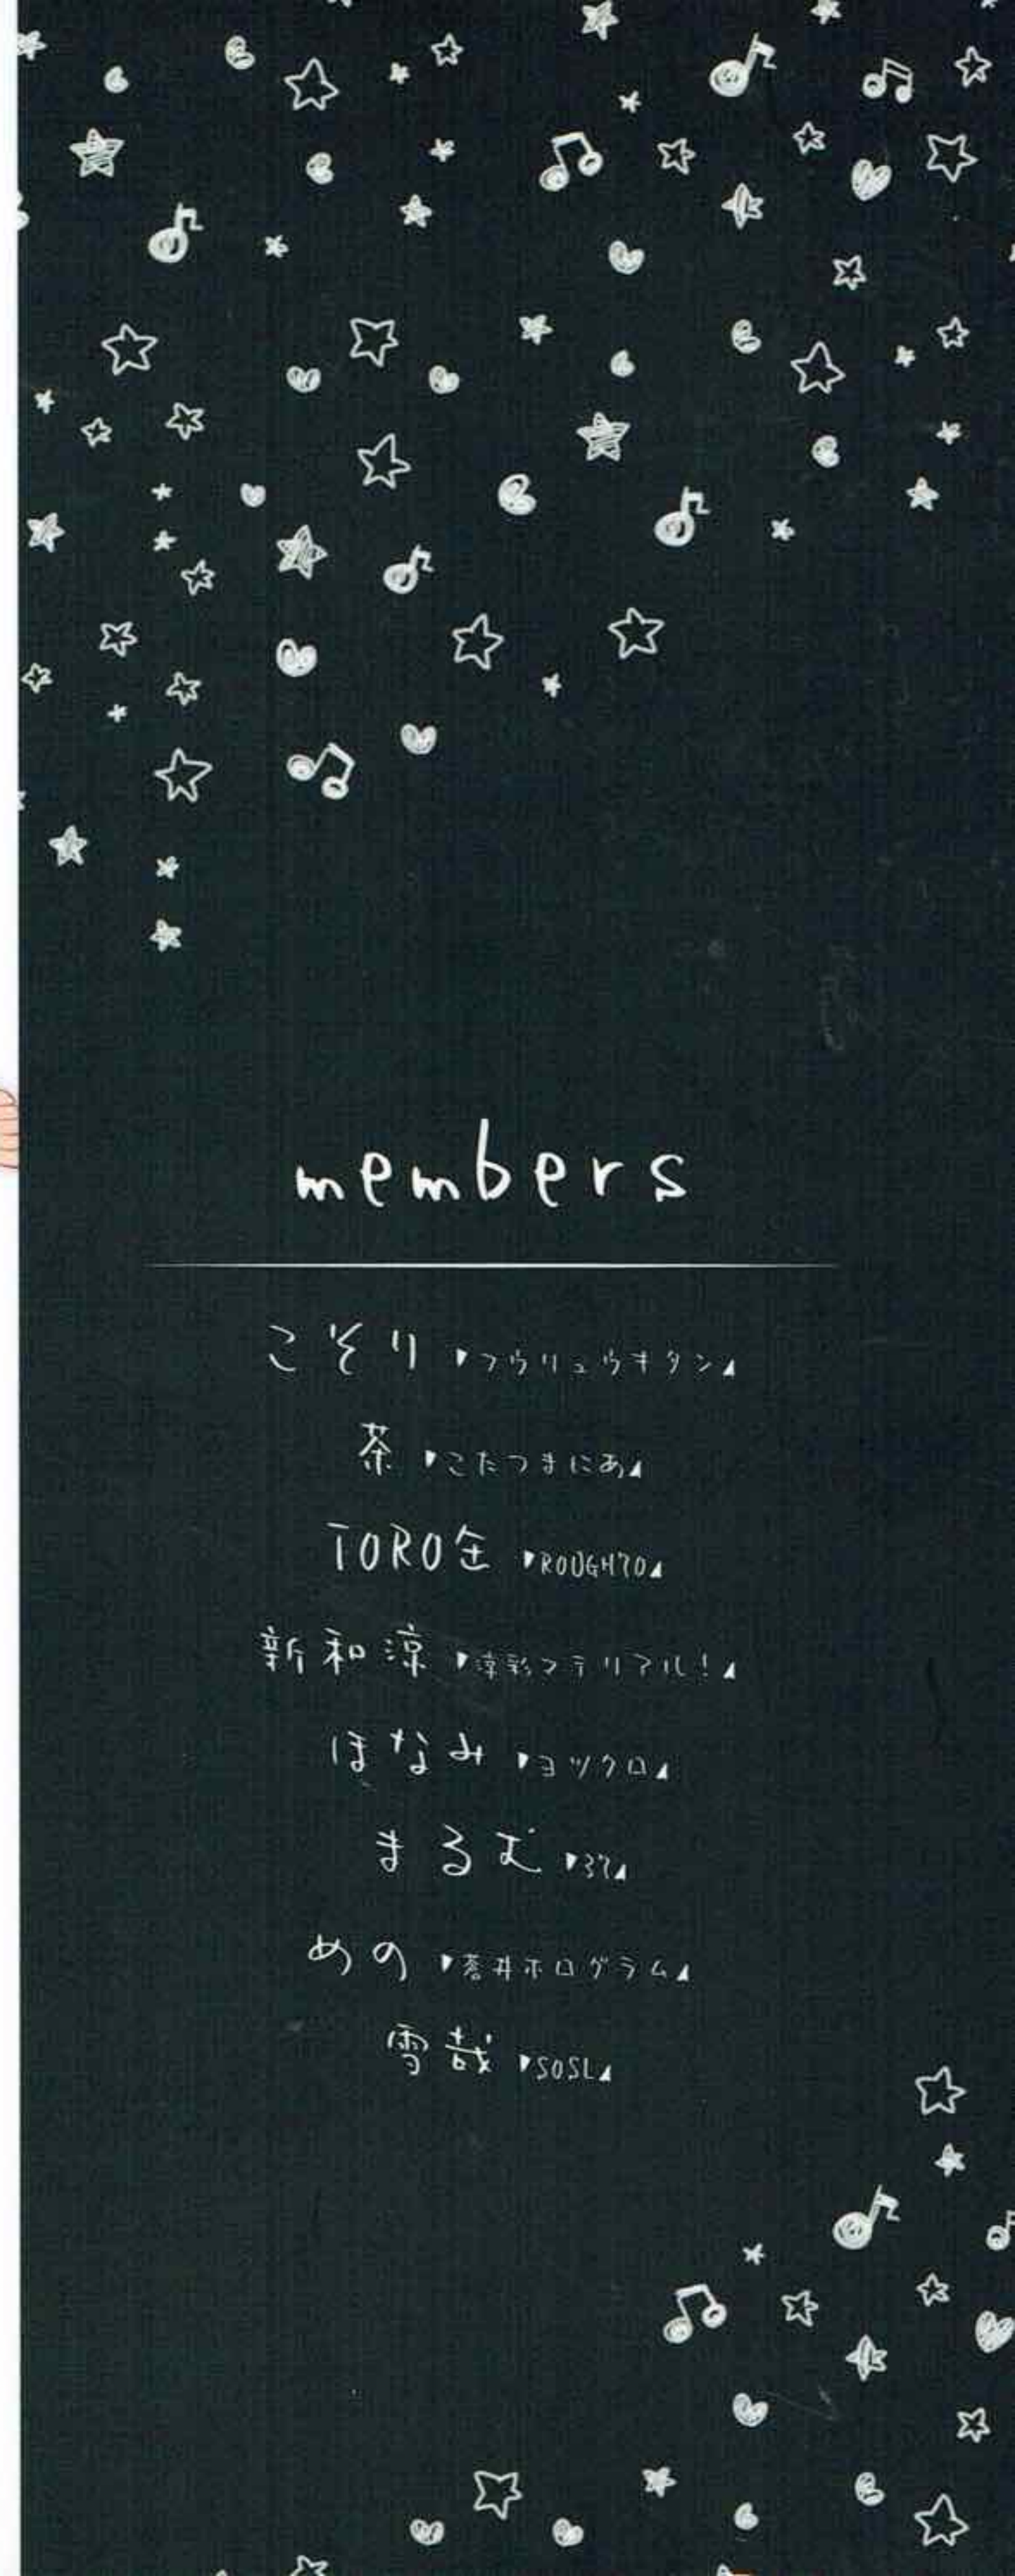 members
こそり▼フウリュウキタン▲
茶▼こたつまにあ▲
TORO缶▼ROUGH70▲
新和涼▼涼彩マテリアル!▲
ほなみ▼ヨツクロ▲
まるむ▼37▲
めの▼蒼井ホログラム▲
雪哉▼SOSL▲